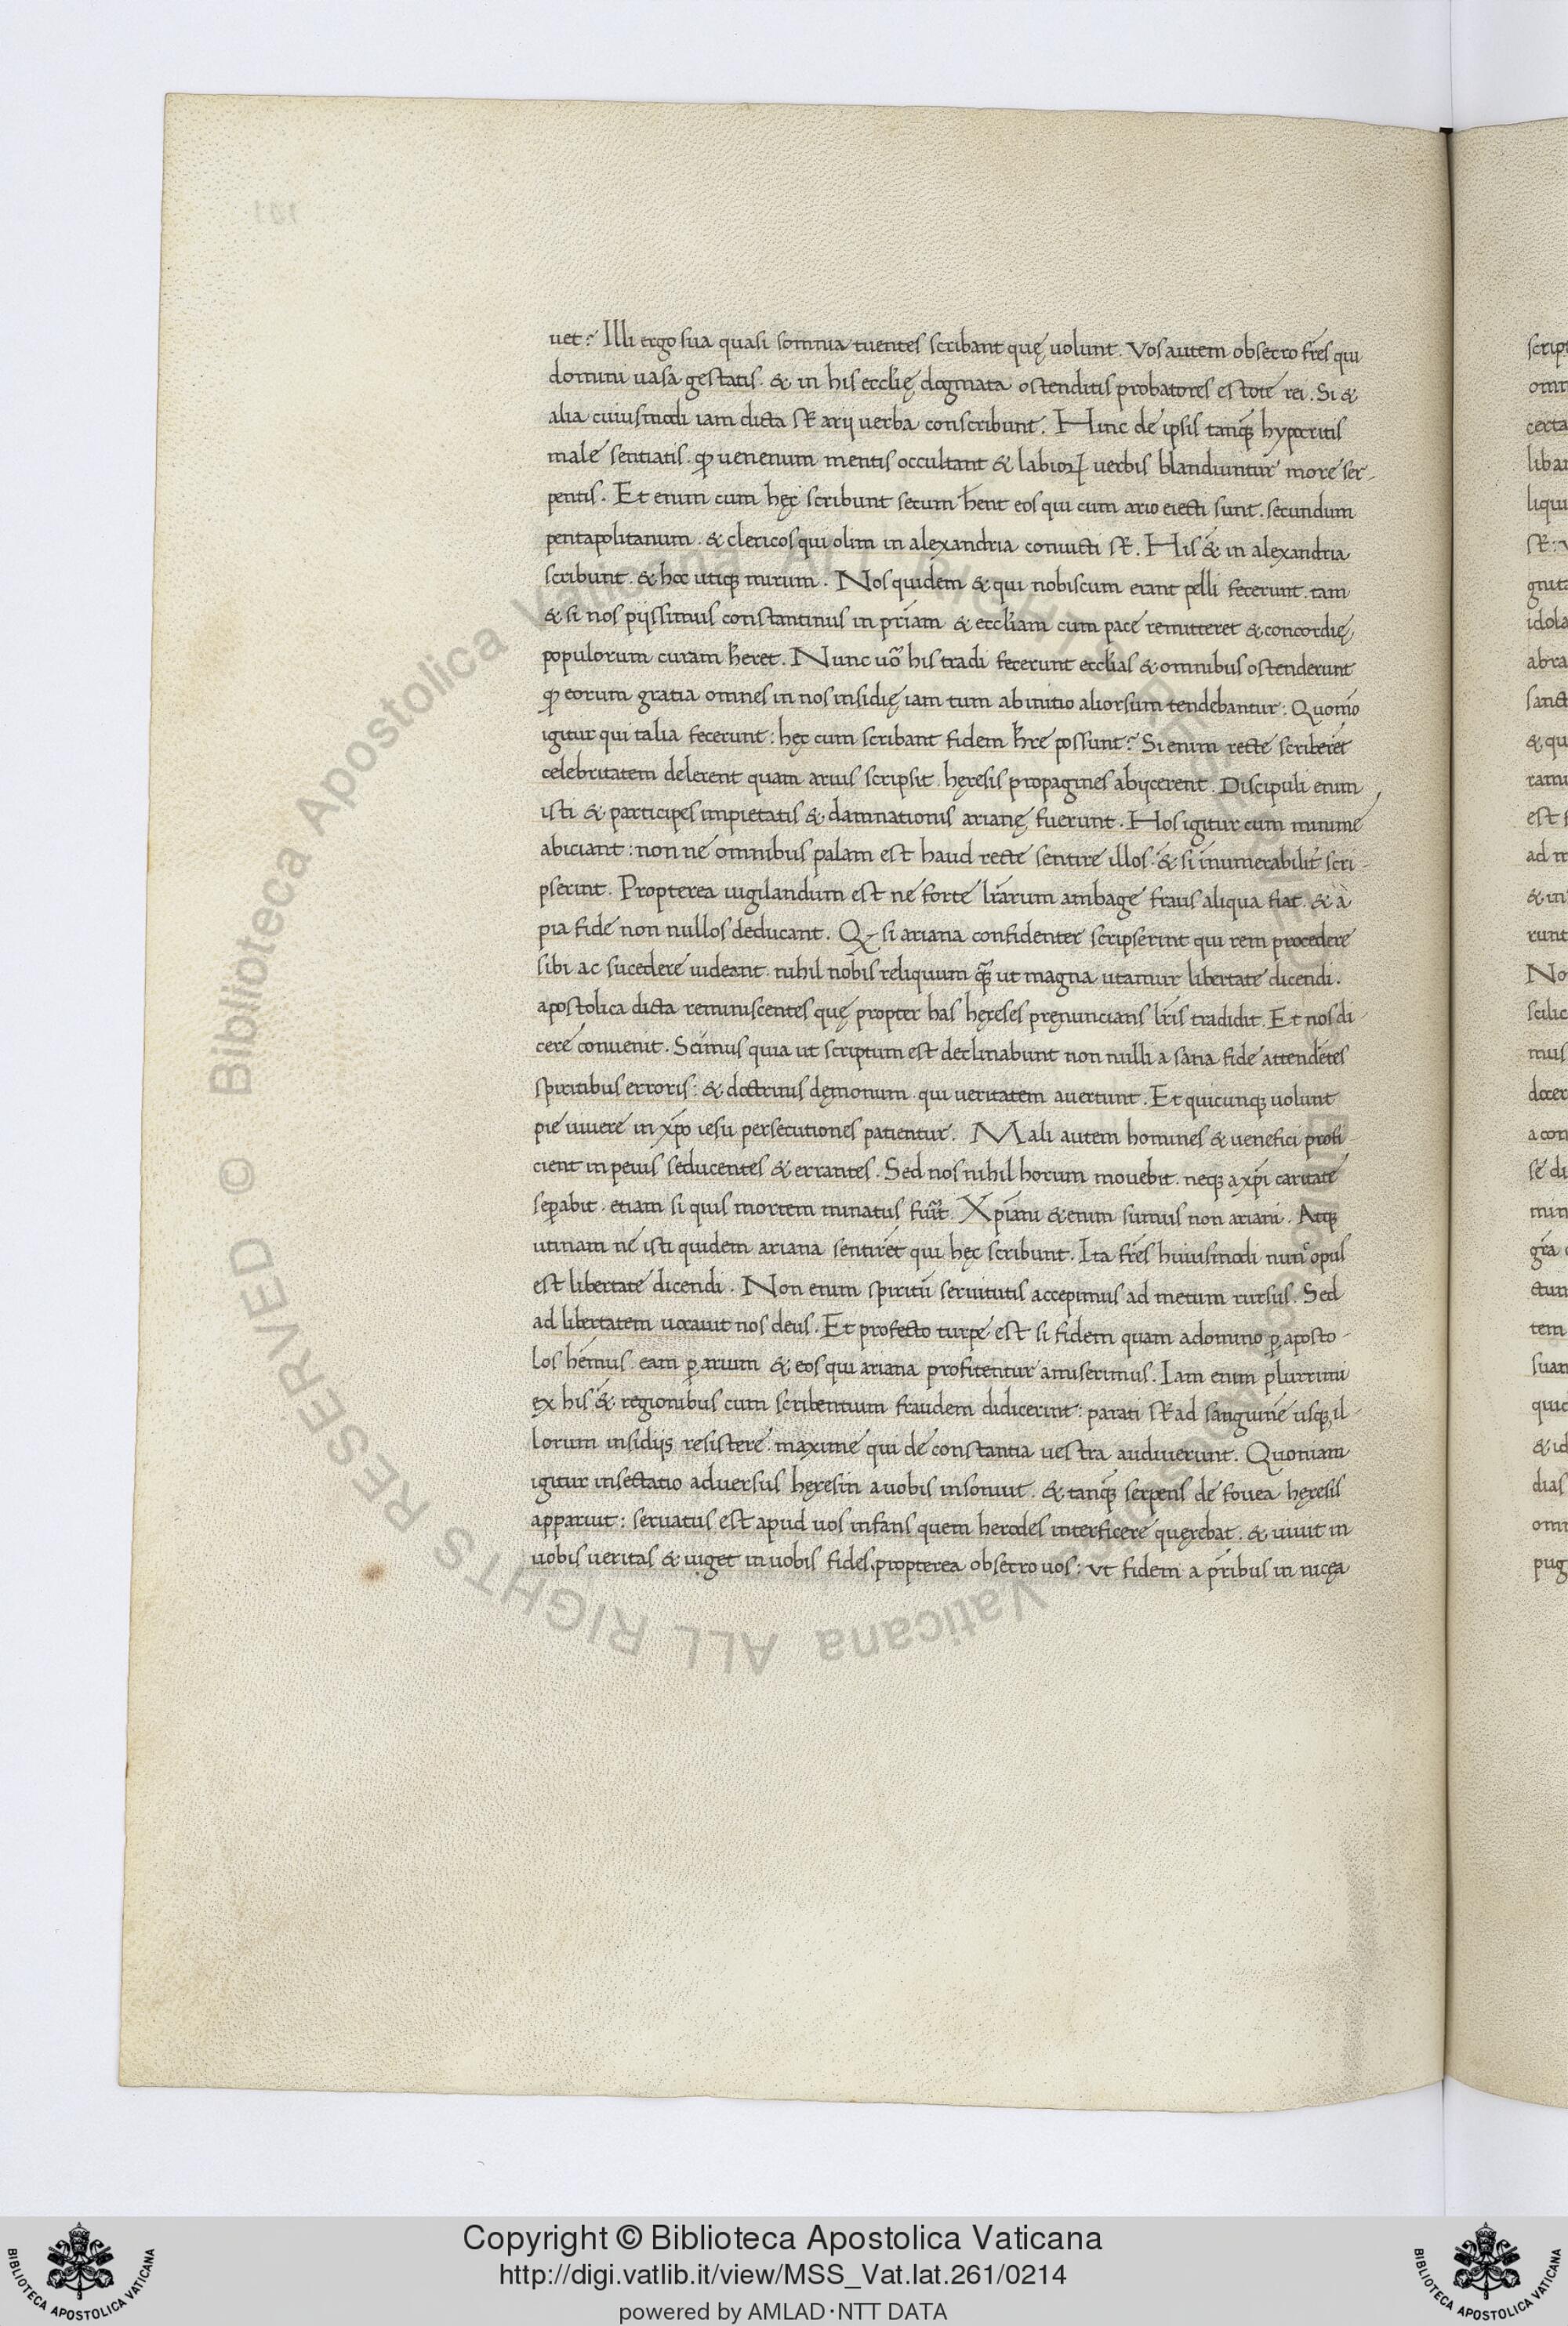 uet? Illi ergo sua quasi somnia tuentes scribant quę uolunt. Vos autem obsecro fr̄es qui
domini uasa gestatis. & in his ecclię dogmata ostenditis probatores estote rei. Si &
alia cuiusmodi iam dicta st̄ arij uerba conscribunt. Hinc de ipsis tanq̄ hypocritis
male sentiatis. ꝙ uenenum mentis occultant & labioꝝ uerbis blandiuntur more ser-
pentis. Et enim cum hęc scribunt secum h̄ent eos qui cum ario eiecti sunt. secundum
pentapolitanum. & clericos qui olim in alexandria conuicti st̄. His & in alexandria
scribunt. & hoc utiqꝫ mirum. Nos quidem & qui nobiscum erant pelli fecerunt. tam
& si nos pijssimus constantinus in pr̄iam & eccl̄iam cum pace remitteret & concordię
populorum curam h̄eret. Nunc uō his tradi fecerunt eccl̄ias & omnibus ostenderunt
ꝙ eorum gratia omnes in nos insidię iam tum ab initio aliorsum tendebantur: Quom̄o
igitur qui talia fecerunt: hęc cum scribant fidem h̄re possunt? Si enim recte scriberet
celebritatem delerent quam arius scripsit. hęresis propagines abijcerent. Discipuli enim
isti & participes impietatis & damnationis arianę fuerunt. Hos igitur cum minime
abiciant: non ne omnibus palam est haud recte sentire illos. & si inumerabilit̄ scri-
pserint. Propterea uigilandum est ne forte lr̄arum ambage fraus aliqua fiat. & à
pia fide non nullos deducant. Q si ariana confidenter scripserint qui rem procedere
sibi ac sucedere uideant. nihil nobis reliquum q̄ ut magna utamur libertate dicendi.
apostolica dicta reminiscentes quę propter has hęreses pręnuncians lr̄is tradidit. Et nos di-
cere conuenit. Scimus quia ut scriptum est declinabunt non nulli a sana fide attendētes
spiritibus erroris: & doctrinis dęmonum qui ueritatem auertunt. Et quicunqꝫ uolunt
pie uiuere in xp̄o iesu persecutiones patientur. Mali autem homines & uenefici profi-
cient in peius seducentes & errantes. Sed nos nihil horum mouebit. neqꝫ a xp̄i caritate
sep̱abit. etiam si quis mortem minatus fūit. Xp̄iani & enim sumus non ariani. Atqꝫ
utinam ne isti quidem ariana sentirēt qui hęc scribunt. Ita fr̄es huiusmodi nunc opus
est libertate dicendi. Non enim spiritū seruitutis accepimus ad metum rursus. Sed
ad libertatem uocauit nos deus. Et profecto turpe est si fidem quam a domino ꝑ aposto-
los h̄emus eam ꝑ arium & eos qui ariana profitentur amiserimus. Iam enim plurimi
ex his & regionibus cum scribentium fraudem didicerint: parati st̄ ad sanguinē usqꝫ il-
lorum insidijs resistere. maxime qui de constantia uestra audiuerunt. Quoniam
igitur insectatio aduersus hęresin a uobis insonuit. & tanq̄ serpens de fouea hęresis
apparuit: seruatus est apud uos infans quem herodes interficere quęrebat. & uiuit in
uobis ueritas & uiget in uobis fides. propterea obsecro uos: ut fidem a pr̄ibus in nicęa
Copyright © Biblioteca Apostolica Vaticana
http://digi.vatlib.it/view/MSS_Vat.lat.261/0214
powered by AMLAD·NTT DATA